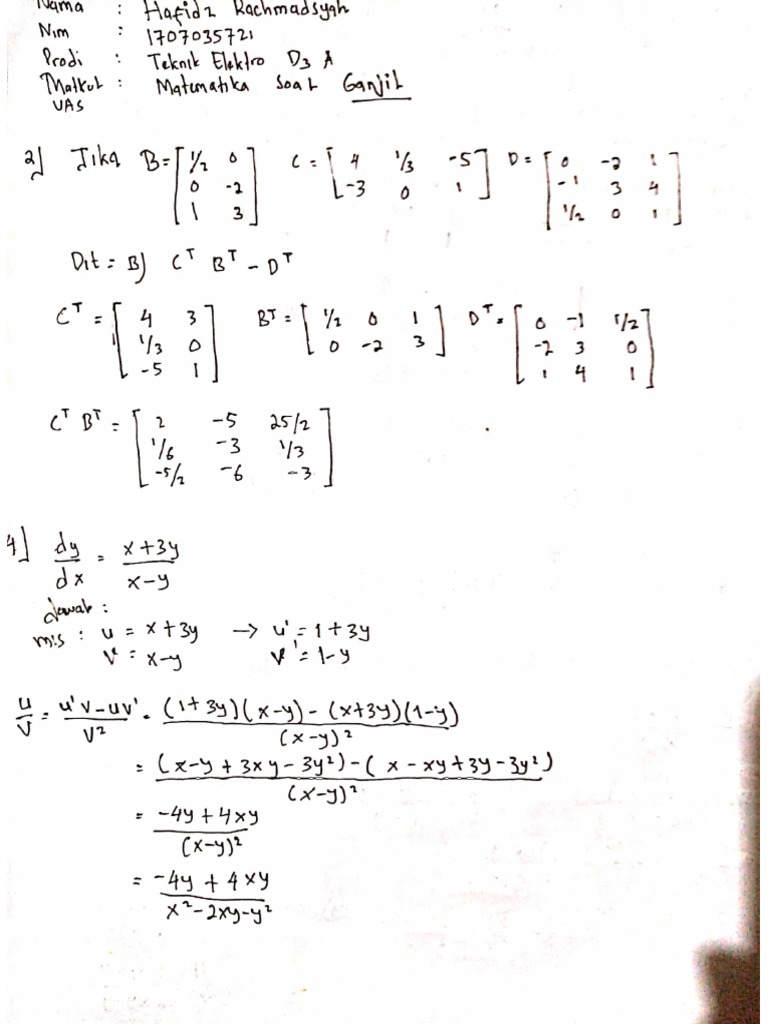 Nama : Hafidz Rachmadsyah
Nim : 1707035721
Prodi : Teknik Elektro D3 A
Matkul : Matematika Soal Ganjil
UAS
2) Jika B = [ 1/2 0 C = [ 4 1/3 -5 ] D = [ 0 -2 1
0 -2 -3 0 1 -1 3 4
1 3 ] 1/2 0 1 ]
Dit = B) C^T B^T - D^T
C^T = [ 4 3 B^T = [ 1/2 0 1 D^T = [ 0 -1 1/2
1/3 0 0 -2 3 ] -2 3 0
-5 1 ] 1 4 1 ]
C^T B^T = [ 2 -5 25/2
1/6 -3 1/3
-5/2 -6 -3 ]
4) dy/dx = x+3y / x-y
Jawab :
mis : u = x+3y → u' = 1+3y
v = x-y v' = 1-y
u/v = u'v-uv' / v² = (1+3y)(x-y) - (x+3y)(1-y) / (x-y)²
= (x-y+3xy-3y²) - (x-xy+3y-3y²) / (x-y)²
= -4y+4xy / (x-y)²
= -4y+4xy / x²-2xy-y²